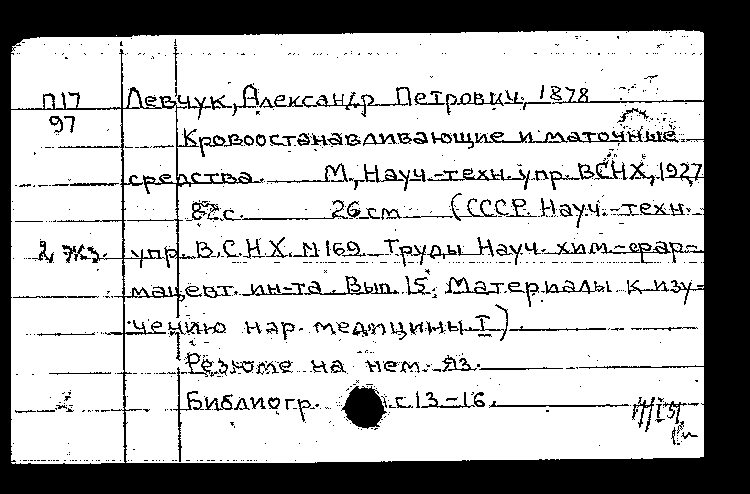 П17 Левчук, Александр Петрович, 1878
97
Кровоостанавливающие и маточные
средства. М., Науч.-техн. упр. ВСНХ, 1927
82 с. 26 см (СССР. Науч.-техн.
2 экз. упр. В.С.Н.Х. N 169. Труды Науч. хим.-фар-
мацевт. ин-та. Вып. 15; Материалы к изу-
чению нар. медицины. I).
Резюме на нем. яз.
Библиогр. с 13-16.